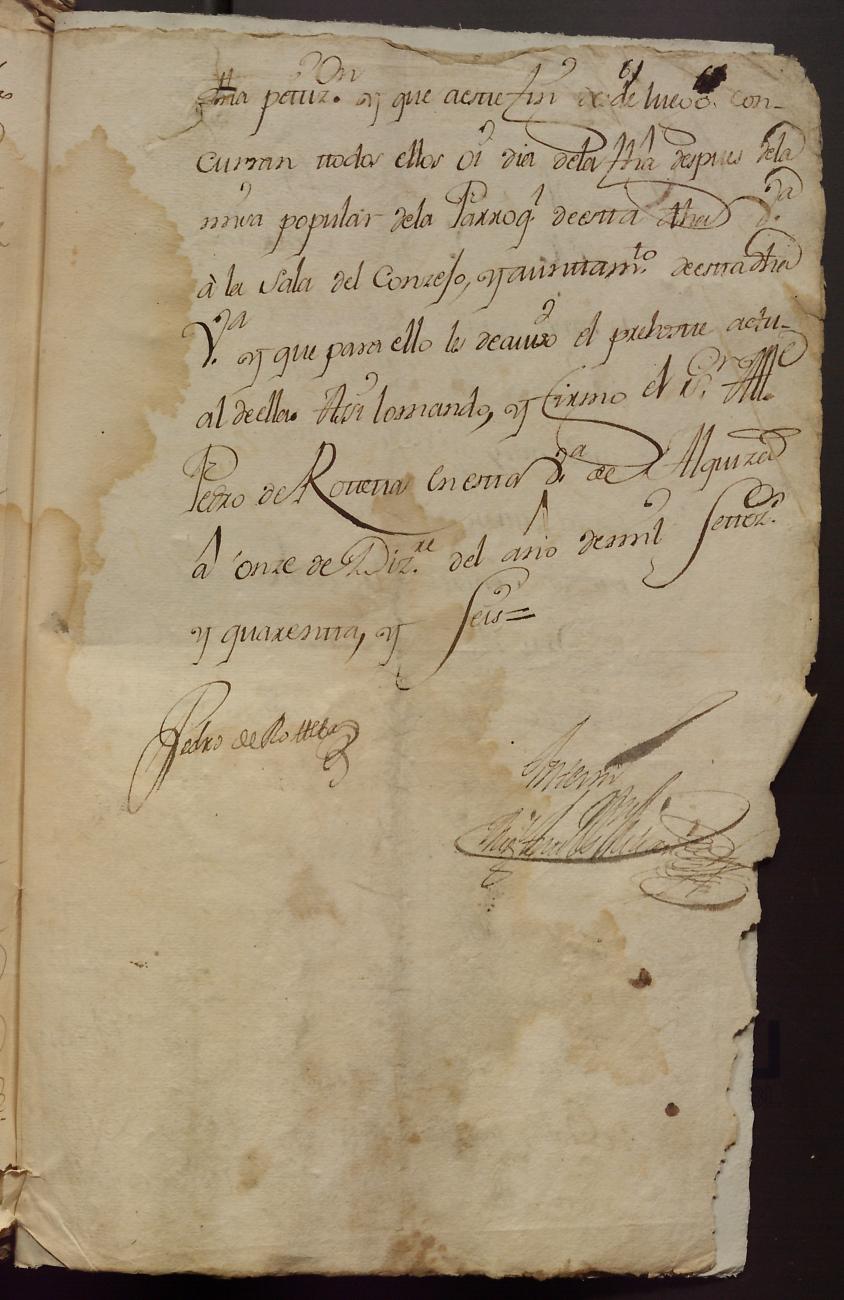 dha petiz.on y que a este fin de luego con-
curran ttodos ellos oi dia de la fha despues de la
misa popular de la Parroql de esta dha V.a
à la Sala del Conzejo, y aiuntam.to de esta dha
V.a y que para ello les de auiso el preste actu-
al de ella. Asi lo mando, y firmo el s.or Alle
Pedro de Rotteta en esta V.a de Alquiza
à onze de Diz.re del año de mil Settez.s
y quarentta, y Seis=
Pedro de Rotteta
Ante mi